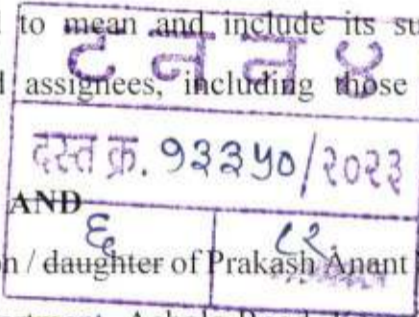 to mean and include its su
ट न न ४
assignees, including those
दस्त क्र. १३३५०/२०२३
AND
६ ८२
/ daughter of Prakash Anant